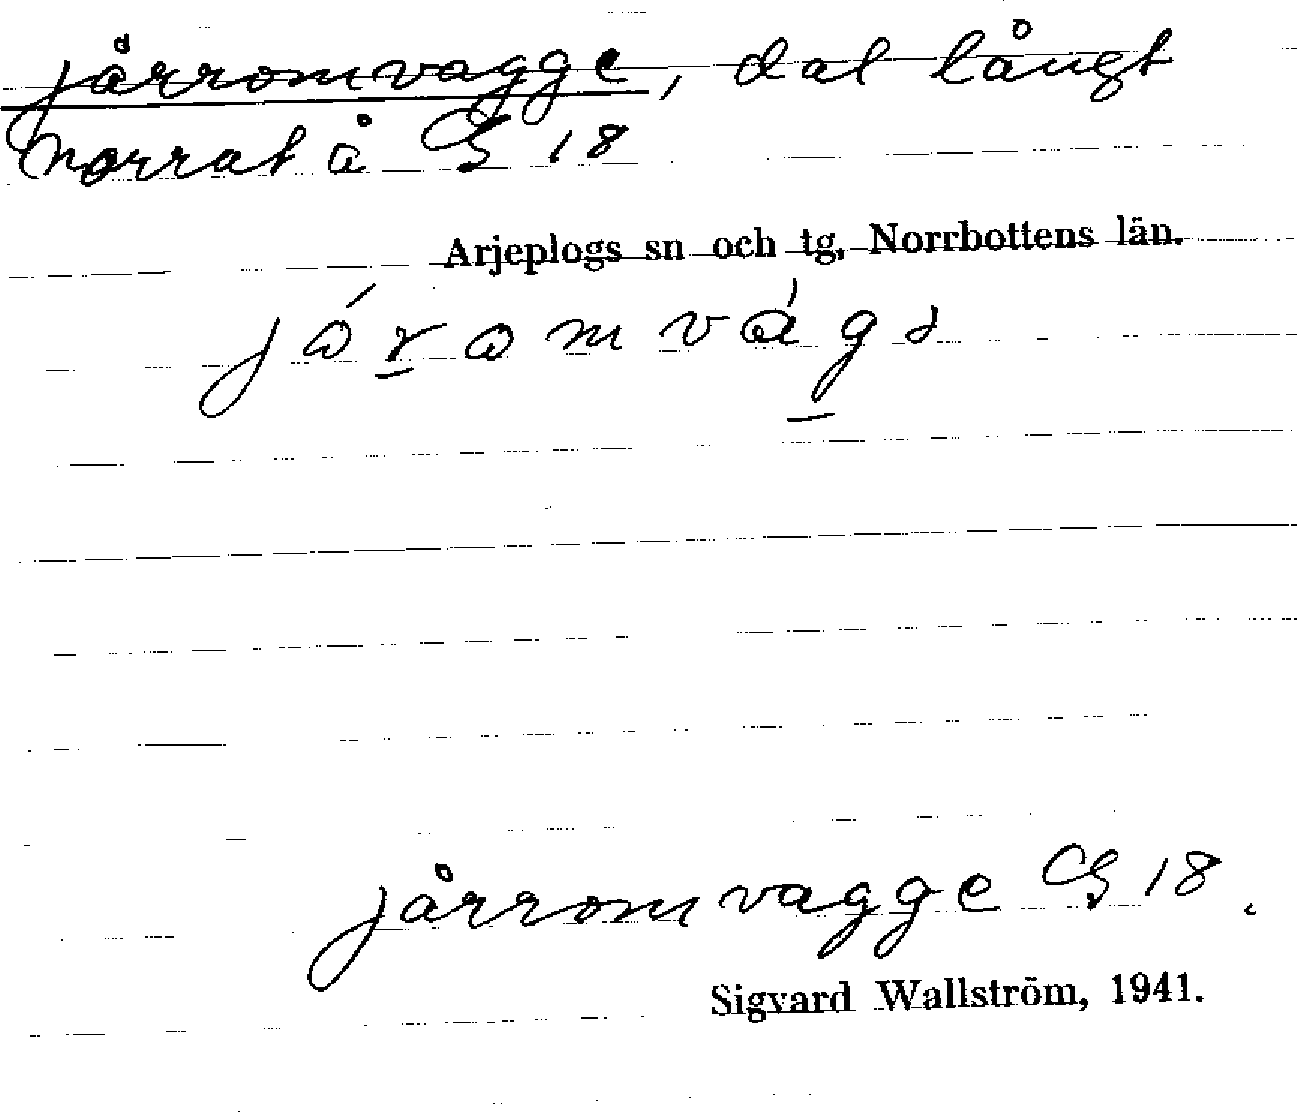 jårromvagge, dal långt
norrat å G 18
Arjeplogs sn och tg, Norrbottens län.
jåromvági
jårromvagge G 18.
Sigvard Wallström, 1941.